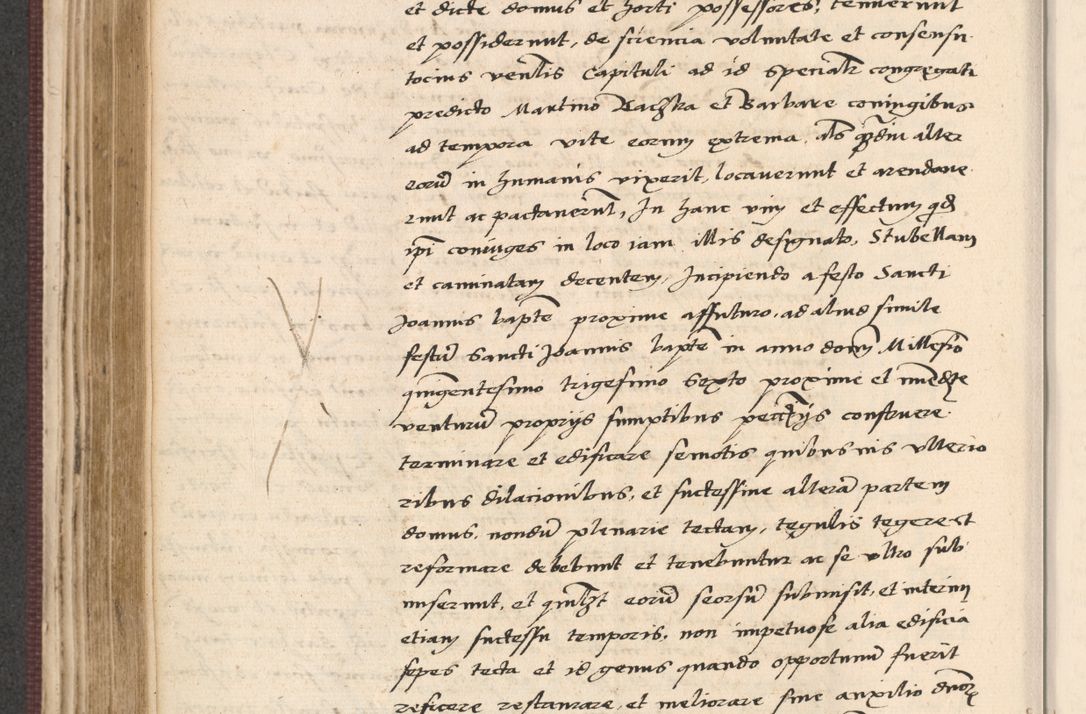 et dicte domus et horti possessores, tenuerunt
et possiderunt, de sciencia voluntate et consensu
tocius ven̄lis Capituli ad id specialr̄ congregati
predicto Martino Raczka et Barbare coniugibus
ad tempora vite eorum extrema, als̄ qdiu alter
eorū in humanis vixerit, locaverunt et arendave
runt ac pactaverūt, In hanc vim et effectum qd
ip̄i coniuges in loco iam illis designato, Stubellam
et caminatam decentem, Incipiendo a festo Sancti
Joannis bapte proxime affuturo, ad aliud simile
festū Sancti Joannis bapte in anno domj Millesio
quingentesimo trigesimo Sexto proxime et immedte
venturū proprijs sumptibus pecc̄ijs construere
terminare et edificare semotis quibusvis vlterio
ribus dilacionibus, et successiue alterā partem
domus, nondū plenarie tectam, tegulis tegere et
reformare debebunt et tenebuntur ac se vltro sub
miserunt, et quilzt eorū seorsū submisit, et interim
etiam successu temporis, non impetuose alia edificia
sepes tecta et id genus quando opportunū fuerit
reficere restaurare, et meliorare sine auxilio dnoɽ